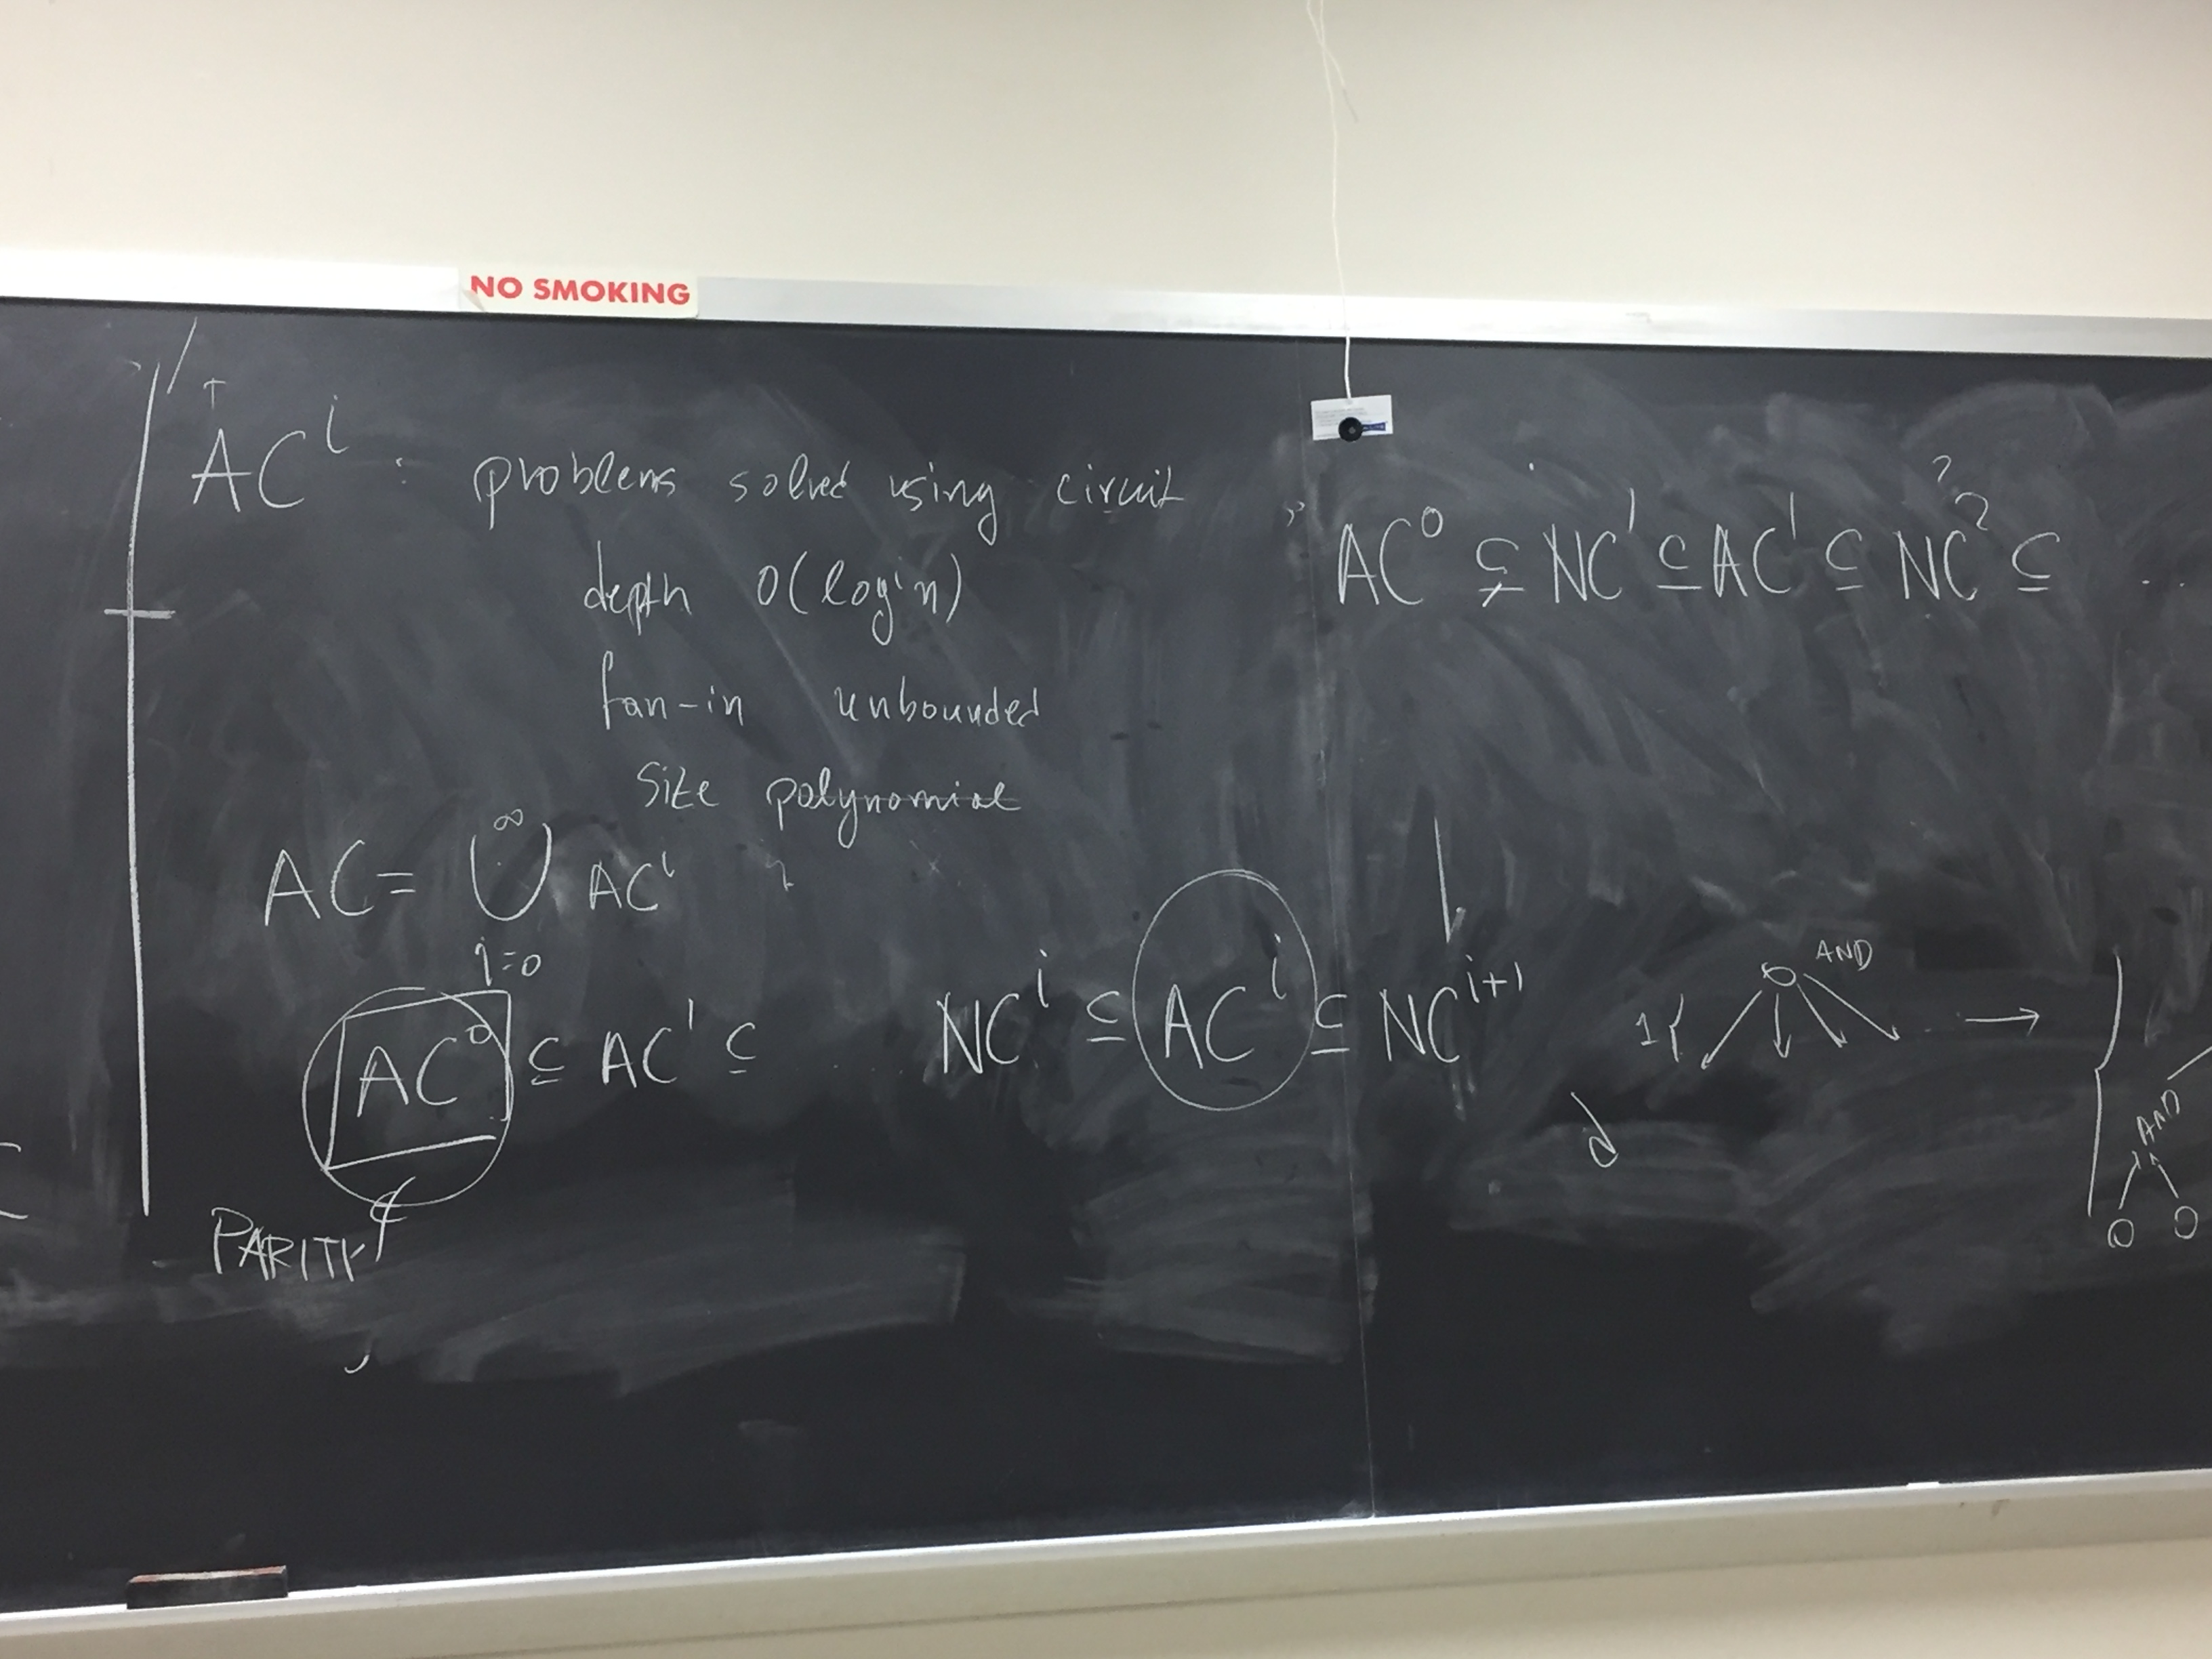 NO SMOKING
ACⁱ : problems solved using circuit
depth O(logⁱn)
fan-in unbounded
size polynomial
AC = ⋃ ACⁱ
∞
i=0
AC⁰ ⊆ AC¹ ⊆ . .
PARITY ∉
NCⁱ ⊆ ACⁱ ⊆ NCⁱ⁺¹
AC⁰ ⊊ NC¹ ⊆ AC¹ ⊆ NC² ⊆ . .
?
AND
1{
→
d
AND